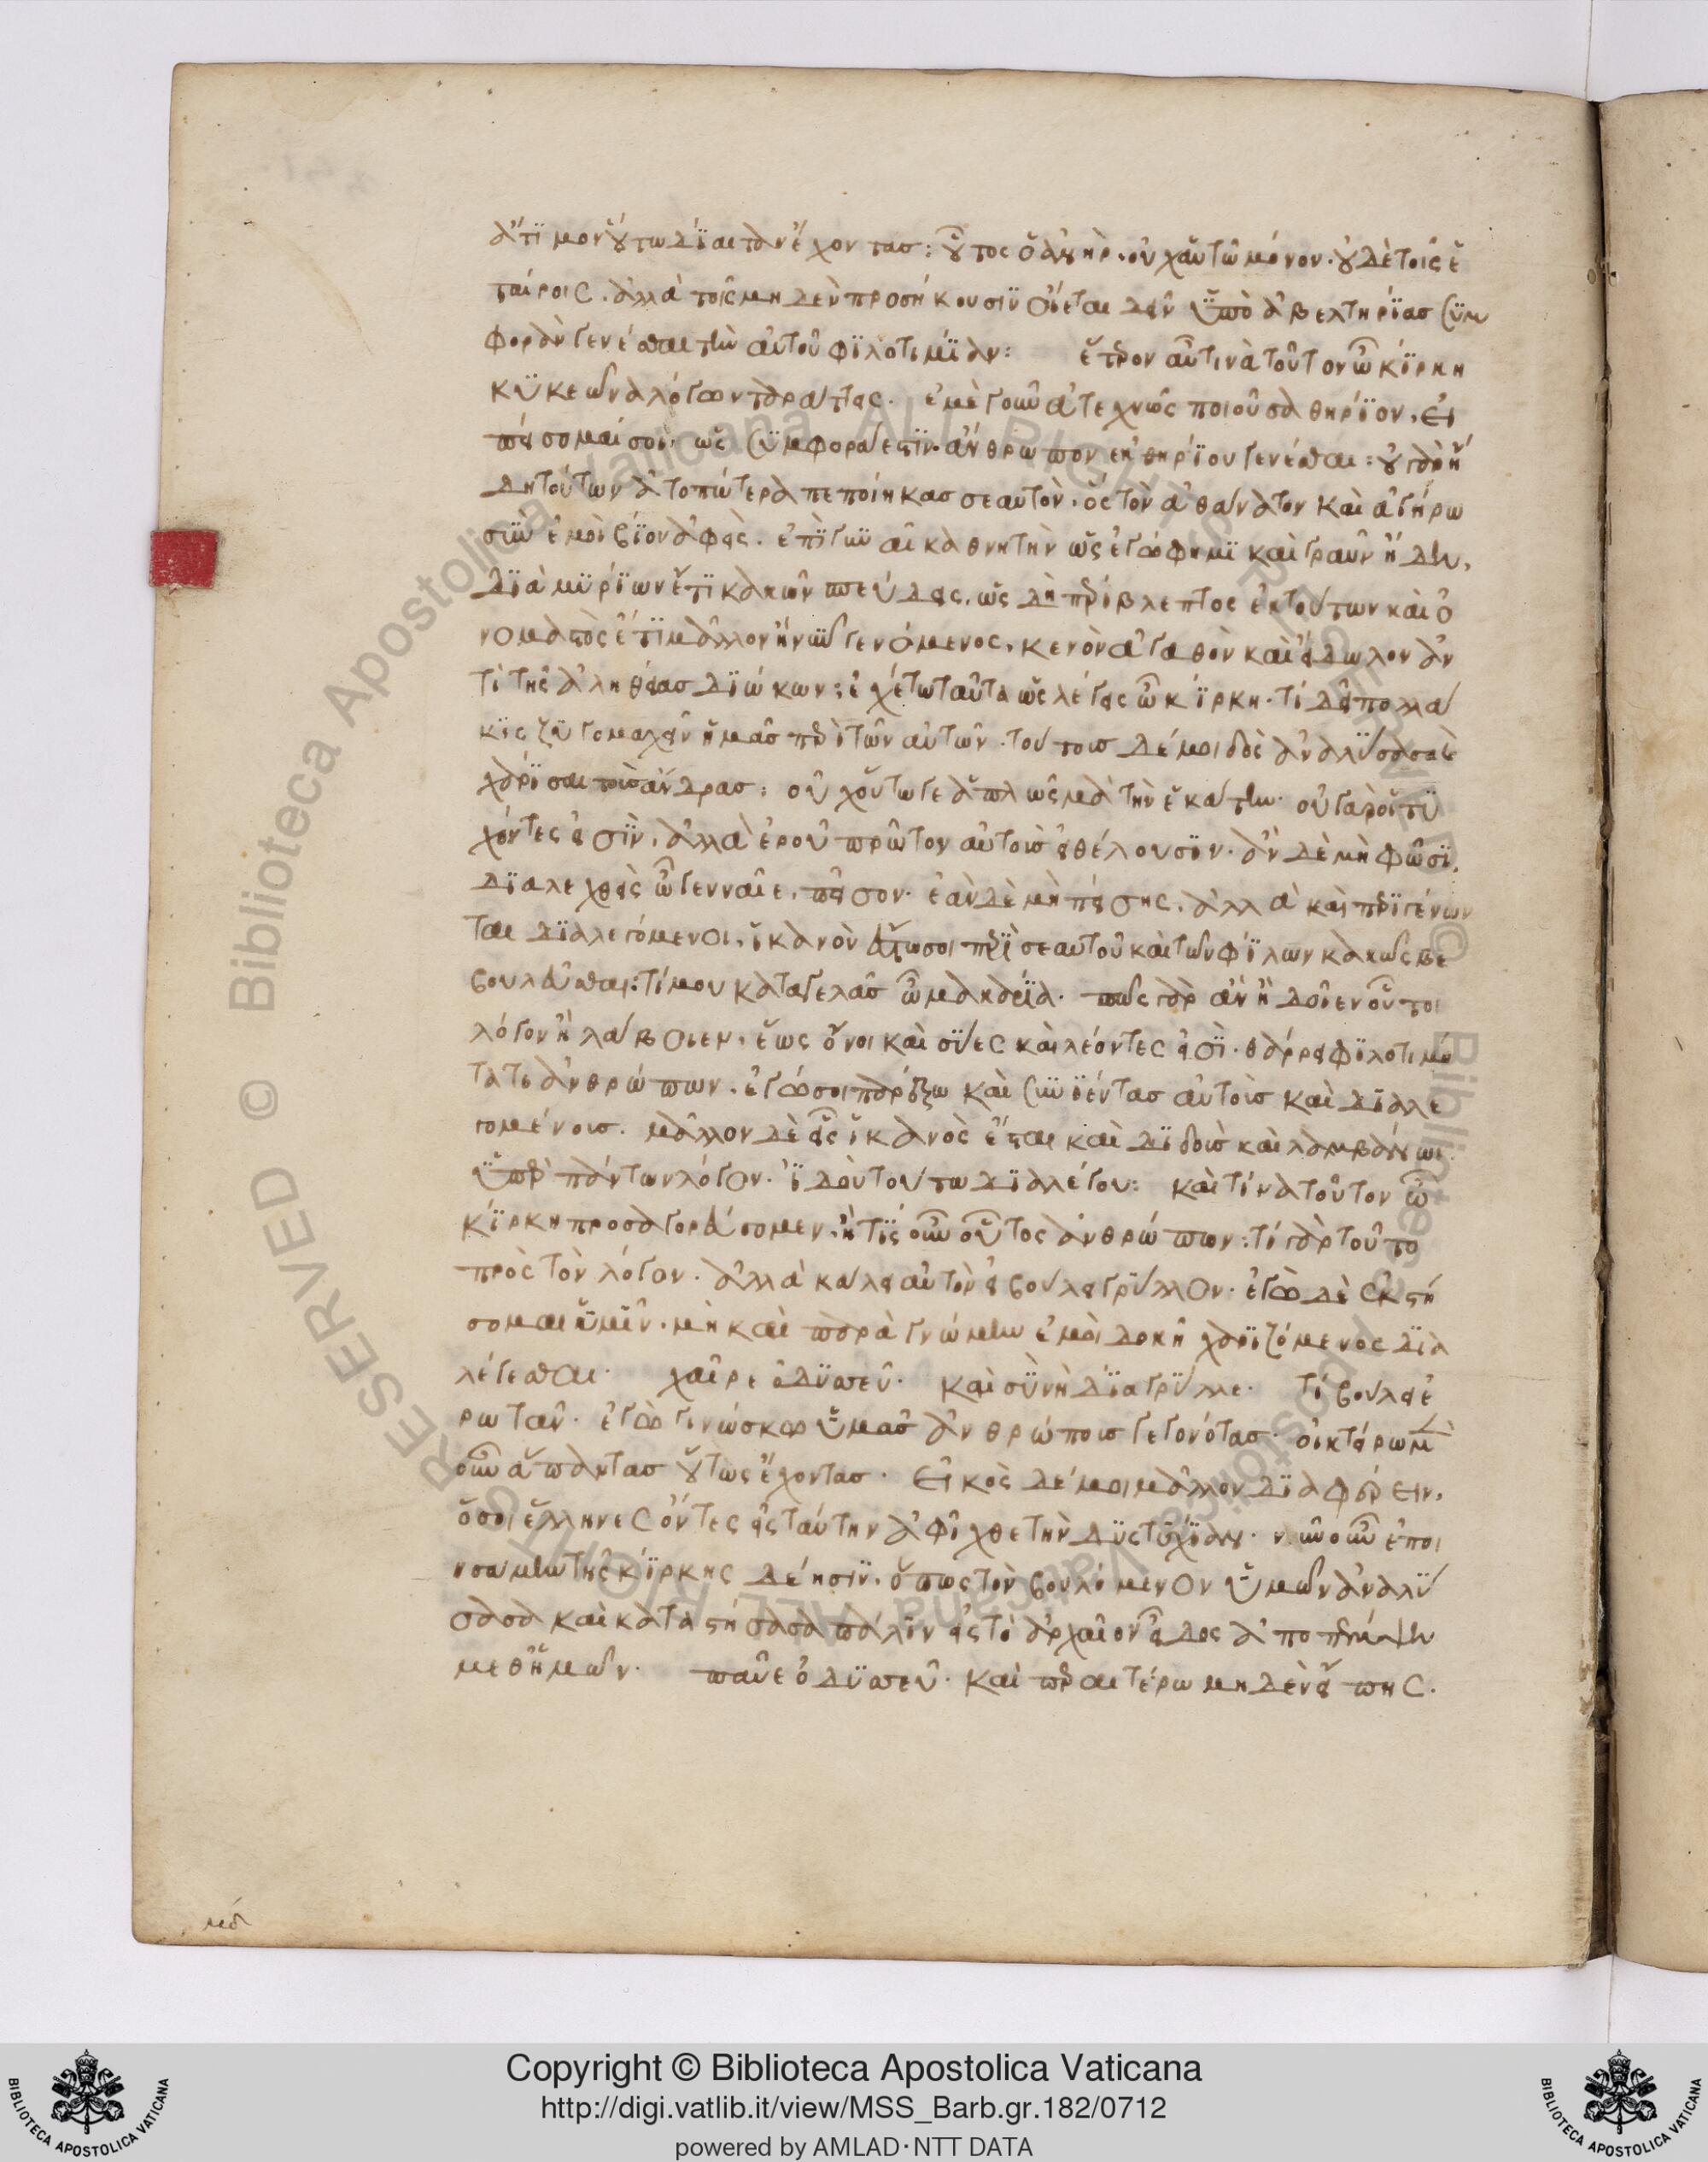 ἄτιμον οὕτω δίαιταν ἔχοντας: οὗτος ὁ ἀνὴρ, οὐχ αὑτῷ μόνον, οὐδὲ τοῖς ἑ
ταίροις, ἀλλὰ τοῖς μηδὲν προσήκουσιν οἴεται δεῖν ὑπὸ ἀβελτηρίας συμ
φορὰν γενέσθαι τὴν αὑτοῦ φιλοτιμίαν: ἕτερον αὖ τινὰ τοῦτον ὦ κίρκη
κυκεῶνα λόγων ταράττεις. ἐμὲ γοῦν ἀτεχνῶς ποιοῦσα θηρίον, εἰ
πείσομαί σοι, ὡς συμφορά ἐστιν ἄνθρωπον ἐκ θηρίου γενέσθαι: οὐ γὰρ ἤ
δη τούτων ἀτοπώτερα πεποίηκας σεαυτὸν, ὃς τὸν ἀθάνατον καὶ ἀγήρω
σὺν ἐμοὶ βίον ἀφεὶς, ἐπὶ γυναῖκα θνητὴν ὡς ἐγώ φημι καὶ γραῦν ἤδη,
διὰ μυρίων ἔτι κακῶν σπεύδεις, ὡς δὴ περίβλεπτος ἐκ τούτων καὶ ὀ
νομαστὸς ἔτι μᾶλλον ἢ νῦν γενόμενος, κενὸν ἀγαθὸν καὶ εἴδωλον ἀν
τὶ τῆς ἀληθείας διώκων: ἐχέτω ταῦτα ὡς λέγεις ὦ κίρκη. τί δεῖ πολλά
κις ζυγομαχεῖν ἡμᾶς περὶ τῶν αὐτῶν. τούτους δέ μοι δὸς ἀναλύσασα καὶ
χάρισαι τοὺς ἄνδρας: οὐχ οὕτω γε ἁπλῶς μὰ τὴν ἑκάτην. οὐ γὰρ οἱ τυ
χόντες εἰσίν. ἀλλὰ ἐροῦ πρῶτον αὐτοὺς εἰ θέλουσιν. ἂν δὲ μὴ φῶσι,
διαλεχθεὶς ὦ γενναῖε, πεῖσον. ἐὰν δὲ μὴ πείσῃς, ἀλλὰ καὶ περιγένων
ται διαλεγόμενοι, ἱκανὸν ἔστω σοι περὶ σεαυτοῦ καὶ τῶν φίλων κακῶς βε
βουλεῦσθαι: τί μου καταγελᾷς ὦ μακαρία. πῶς γὰρ ἂν ἢ δοῖεν οὗτοι
λόγον ἢ λάβοιεν, ἕως ὄνοι καὶ σύες καὶ λέοντες εἰσί. θάρρει φιλοτιμό
τατε ἀνθρώπων. ἐγώ σοι παρέξω καὶ συνιέντας αὐτοὺς καὶ διαλε
γομένους. μᾶλλον δὲ εἷς ἱκανὸς ἔσται καὶ διδοὺς καὶ λαμβάνων
ὑπὲρ πάντων λόγον. ἰδοὺ τούτῳ διαλέγου: καὶ τίνα τοῦτον ὦ
κίρκη προσαγορεύσομεν, ἢ τίς οὖν οὗτος ἀνθρώπων: τί γὰρ τοῦτο
πρὸς τὸν λόγον. ἀλλὰ κάλει αὐτὸν εἰ βούλει γρύλλον. ἐγὼ δὲ ἐκστή
σομαι ὑμῖν, μὴ καὶ παρὰ γνώμην ἐμοὶ δοκῇ χαριζόμενος δια
λέγεσθαι. χαῖρε ὀδυσσεῦ. καὶ σὺ νὴ δία γρύλλε. τί βούλει ἐ
ρωτᾶν. ἐγὼ γινώσκων ὑμᾶς ἀνθρώπους γεγονότας, οἰκτείρω μὲν
οὖν ἅπαντας οὕτως ἔχοντας. εἰκὸς δέ μοι μᾶλλον διαφέρειν,
ὅσοι ἕλληνες ὄντες εἰς ταύτην ἀφῖχθε τὴν δυστυχίαν. νῦν οὖν ἐποι
ησάμην τῆς κίρκης δέησιν, ὅπως τὸν βουλόμενον ὑμῶν ἀναλύ
σασα καὶ καταστήσασα πάλιν εἰς τὸ ἀρχαῖον εἶδος ἀποπέμψῃ
μεθ' ἡμῶν. παῦε ὀδυσσεῦ. καὶ περαιτέρω μηδὲν εἴπῃς.
μδ
Copyright © Biblioteca Apostolica Vaticana
http://digi.vatlib.it/view/MSS_Barb.gr.182/0712
powered by AMLAD·NTT DATA